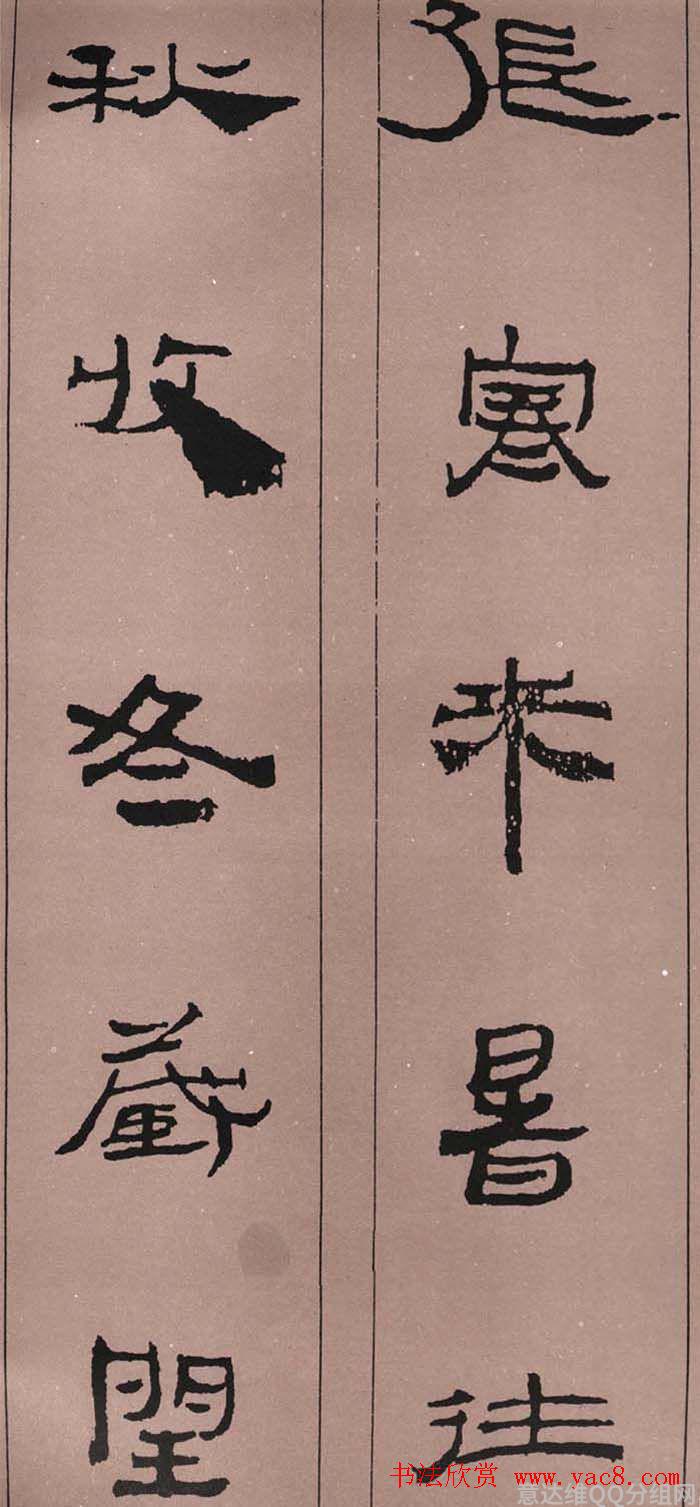 張寒來暑往
秋收冬藏閏
书法欣赏 www.yac8.com
意达维QQ分组网